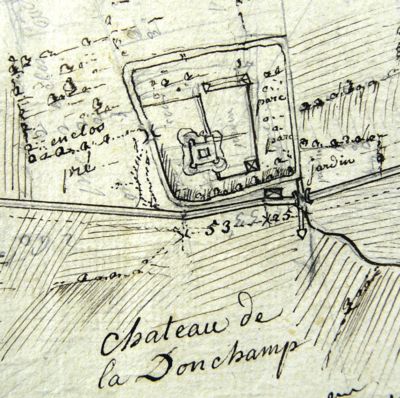 enclos
pré
parc
parc
jardin
chateau de
la Donchamp